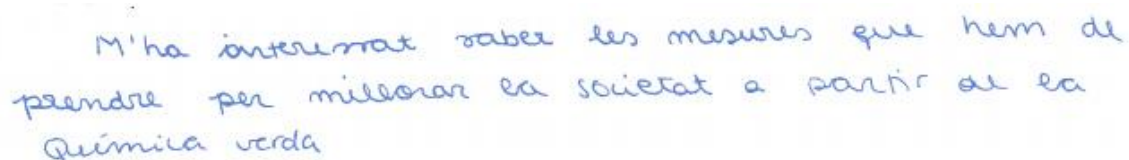 M'ha interessat saber les mesures que hem de
prendre per millorar la societat a partir de la
Química verda